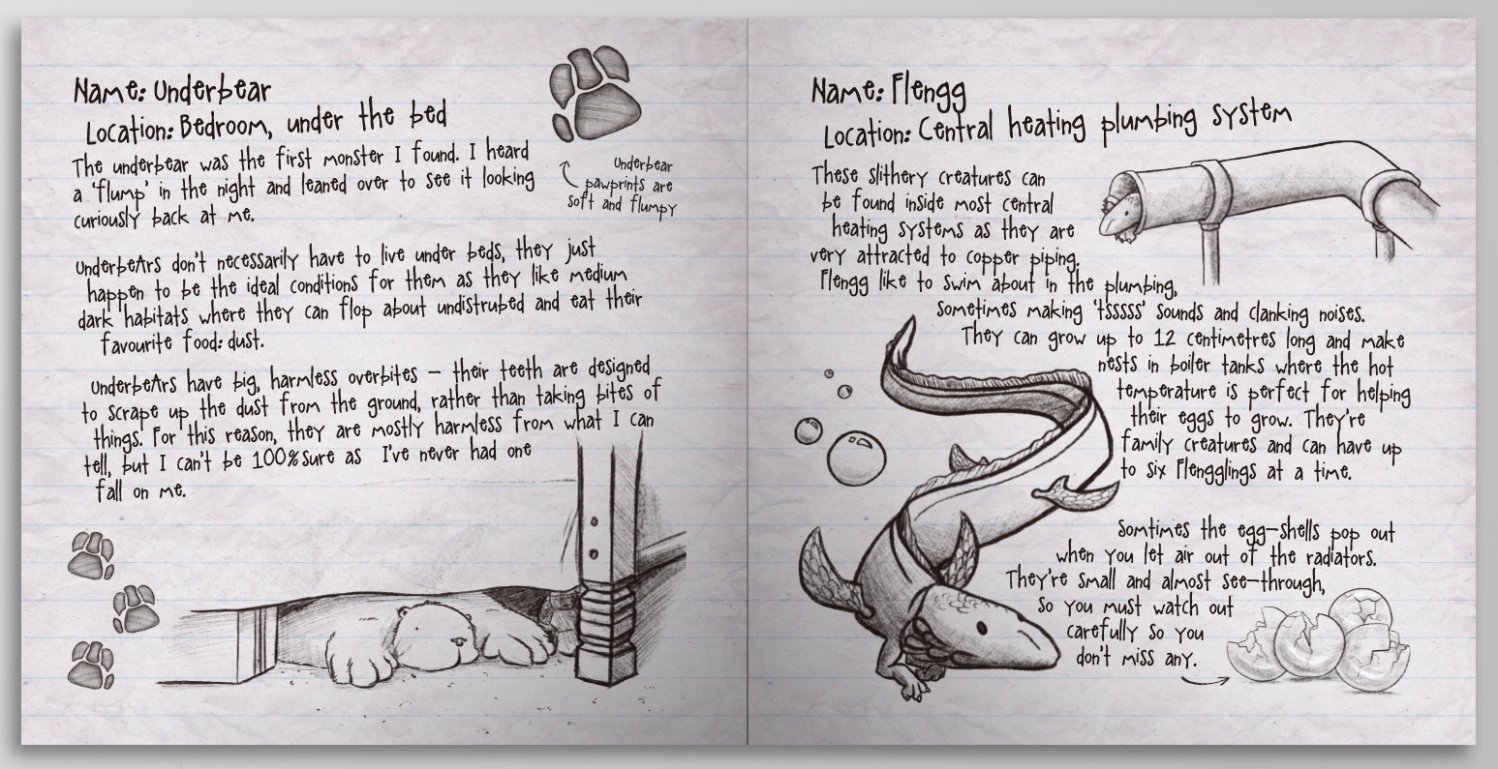 Name: Underbear
Location: Bedroom, under the bed
The underbear was the first monster I found. I heard
a 'flump' in the night and leaned over to see it looking
curiously back at me.
Underbear
pawprints are
soft and flumpy
Underbears don't necessarily have to live under beds, they just
happen to be the ideal conditions for them as they like medium
dark habitats where they can flop about undistrubed and eat their
favourite food: dust.
Underbears have big, harmless overbites – their teeth are designed
to scrape up the dust from the ground, rather than taking bites of
things. For this reason, they are mostly harmless from what I can
tell, but I can't be 100% sure as I've never had one
fall on me.
Name: Flengg
Location: Central heating plumbing system
These slithery creatures can
be found inside most central
heating systems as they are
very attracted to copper piping.
Flengg like to swim about in the plumbing,
sometimes making 'tsssss' sounds and clanking noises.
They can grow up to 12 centimetres long and make
nests in boiler tanks where the hot
temperature is perfect for helping
their eggs to grow. They're
family creatures and can have up
to six Flengglings at a time.
Somtimes the egg-shells pop out
when you let air out of the radiators.
They're small and almost see-through,
so you must watch out
carefully so you
don't miss any.